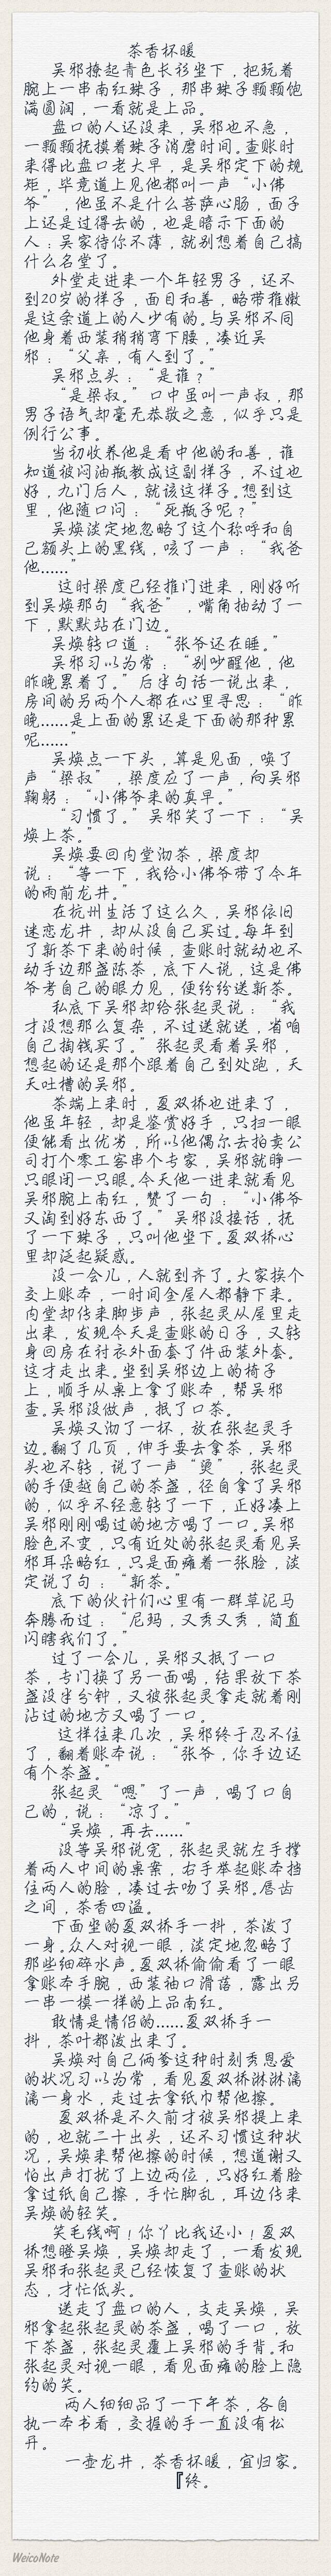 茶香杯暖
吴邪撩起青色长衫坐下，把玩着
腕上一串南红珠子，那串珠子颗颗饱
满圆润，一看就是上品。
盘口的人还没来，吴邪也不急，
一颗颗抚摸着珠子消磨时间。查账时
来得比盘口老大早，是吴邪定下的规
矩，毕竟道上见他都叫一声“小佛
爷”，他虽不是什么菩萨心肠，面子
上还是过得去的，也是暗示下面的
人：吴家待你不薄，就别想着自己搞
什么名堂了。
外堂走进来一个年轻男子，还不
到20岁的样子，面目和善，略带稚嫩
是这条道上的人少有的。与吴邪不同
他身着西装稍稍弯下腰，凑近吴
邪：“父亲，有人到了。”
吴邪点头：“是谁？”
“是梁叔。”口中虽叫一声叔，那
男子语气却毫无恭敬之意，似乎只是
例行公事。
当初收养他是看中他的和善，谁
知道被闷油瓶教成这副样子，不过也
好，九门后人，就该这样子。想到这
里，他随口问：“死瓶子呢？”
吴焕淡定地忽略了这个称呼和自
己额头上的黑线，咳了一声：“我爸
他……”
这时梁度已经推门进来，刚好听
到吴焕那句“我爸”，嘴角抽动了一
下，默默站在门边。
吴焕转口道：“张爷还在睡。”
吴邪习以为常：“别吵醒他，他
昨晚累着了。”后半句话一说出来，
房间的另两个人都在心里寻思：“昨
晚……是上面的累还是下面的那种累
呢……”
吴焕点一下头，算是见面，唤了
声“梁叔”，梁度应了一声，向吴邪
鞠躬：“小佛爷来的真早。”
“习惯了。”吴邪笑了一下：“吴
焕上茶。”
吴焕要回内堂沏茶，梁度却
说：“等一下，我给小佛爷带了今年
的雨前龙井。”
在杭州生活了这么久，吴邪依旧
迷恋龙井，却从没自己买过。每年到
了新茶下来的时候，查账时就动也不
动手边那盏陈茶，底下人说，这是佛
爷考自己的眼力见，便纷纷送新茶。
私底下吴邪却给张起灵说：“我
才没想那么复杂，不过送就送，省咱
自己掏钱买了。”张起灵看着吴邪，
想起的还是那个跟着自己到处跑，天
天吐槽的吴邪。
茶端上来时，夏双桥也进来了，
他虽年轻，却是鉴赏好手，只扫一眼
便能看出优劣，所以他偶尔去拍卖公
司打个零工客串个专家，吴邪就睁一
只眼闭一只眼。今天他一进来就看见
吴邪腕上南红，赞了一句：“小佛爷
又淘到好东西了。”吴邪没接话，抚
了一下珠子，只叫他坐下。夏双桥心
里却泛起疑惑。
没一会儿，人就到齐了。大家挨个
交上账本，一时间全屋人都静下来。
内堂却传来脚步声，张起灵从屋里走
出来，发现今天是查账的日子，又转
身回房在衬衣外面套了件西装外套。
这才走出来。坐到吴邪边上的椅子
上，顺手从桌上拿了账本，帮吴邪
查。吴邪没做声，抿了口茶。
吴焕又沏了一杯，放在张起灵手
边。翻了几页，伸手要去拿茶，吴邪
头也不转，说了一声“烫”，张起灵
的手便越自己的茶盏，径自拿了吴邪
的，似乎不轻意转了一下，正好凑上
吴邪刚刚喝过的地方喝了一口。吴邪
脸色不变，只有近处的张起灵看见吴
邪耳朵略红，只是面瘫着一张脸，淡
定说了句：“新茶。”
底下的伙计们心里有一群草泥马
奔腾而过：“尼玛，又秀又秀，简直
闪瞎我们了。”
过了一会儿，吴邪又抿了一口
茶，专门换了另一面喝，结果放下茶
盏没半分钟，又被张起灵拿走就着刚
沾过的地方又喝了一口。
这样往来几次，吴邪终于忍不住
了，翻着账本说：“张爷，你手边还
有个茶盏。”
张起灵“嗯”了一声，喝了口自
己的，说：“凉了。”
“吴焕，再去……”
没等吴邪说完，张起灵就左手撑
着两人中间的桌案，右手举起账本挡
住两人的脸，凑过去吻了吴邪。唇齿
之间，茶香四溢。
下面坐的夏双桥手一抖，茶泼了
一身。众人对视一眼，淡定地忽略了
那些细碎水声。夏双桥偷偷看了一眼
拿账本手腕，西装袖口滑落，露出另
一串一模一样的上品南红。
敢情是情侣的……夏双桥手一
抖，茶叶都泼出来了。
吴焕对自己俩爹这种时刻秀恩爱
的状况习以为常，看见夏双桥淋淋漓
漓一身水，走过去拿纸巾帮他擦。
夏双桥是不久前才被吴邪提上来
的，也就二十出头，还不习惯这种状
况，吴焕来帮他擦的时候，想道谢又
怕出声打扰了上边两位，只好红着脸
拿过纸自己擦，手忙脚乱，耳边传来
吴焕的轻笑。
笑毛线啊！你丫比我还小！夏双
桥想瞪吴焕，吴焕却走了，一看发现
吴邪和张起灵已经恢复了查账的状
态，才忙低头。
送走了盘口的人，支走吴焕，吴
邪拿起张起灵的茶盏，喝了一口，放
下茶盏，张起灵覆上吴邪的手背。和
张起灵对视一眼，看见面瘫的脸上隐
约的笑。
两人细细品了一下午茶，各自
执一本书看，交握的手一直没有松
开。
一壶龙井，茶香杯暖，宜归家。
『终。
WeicoNote